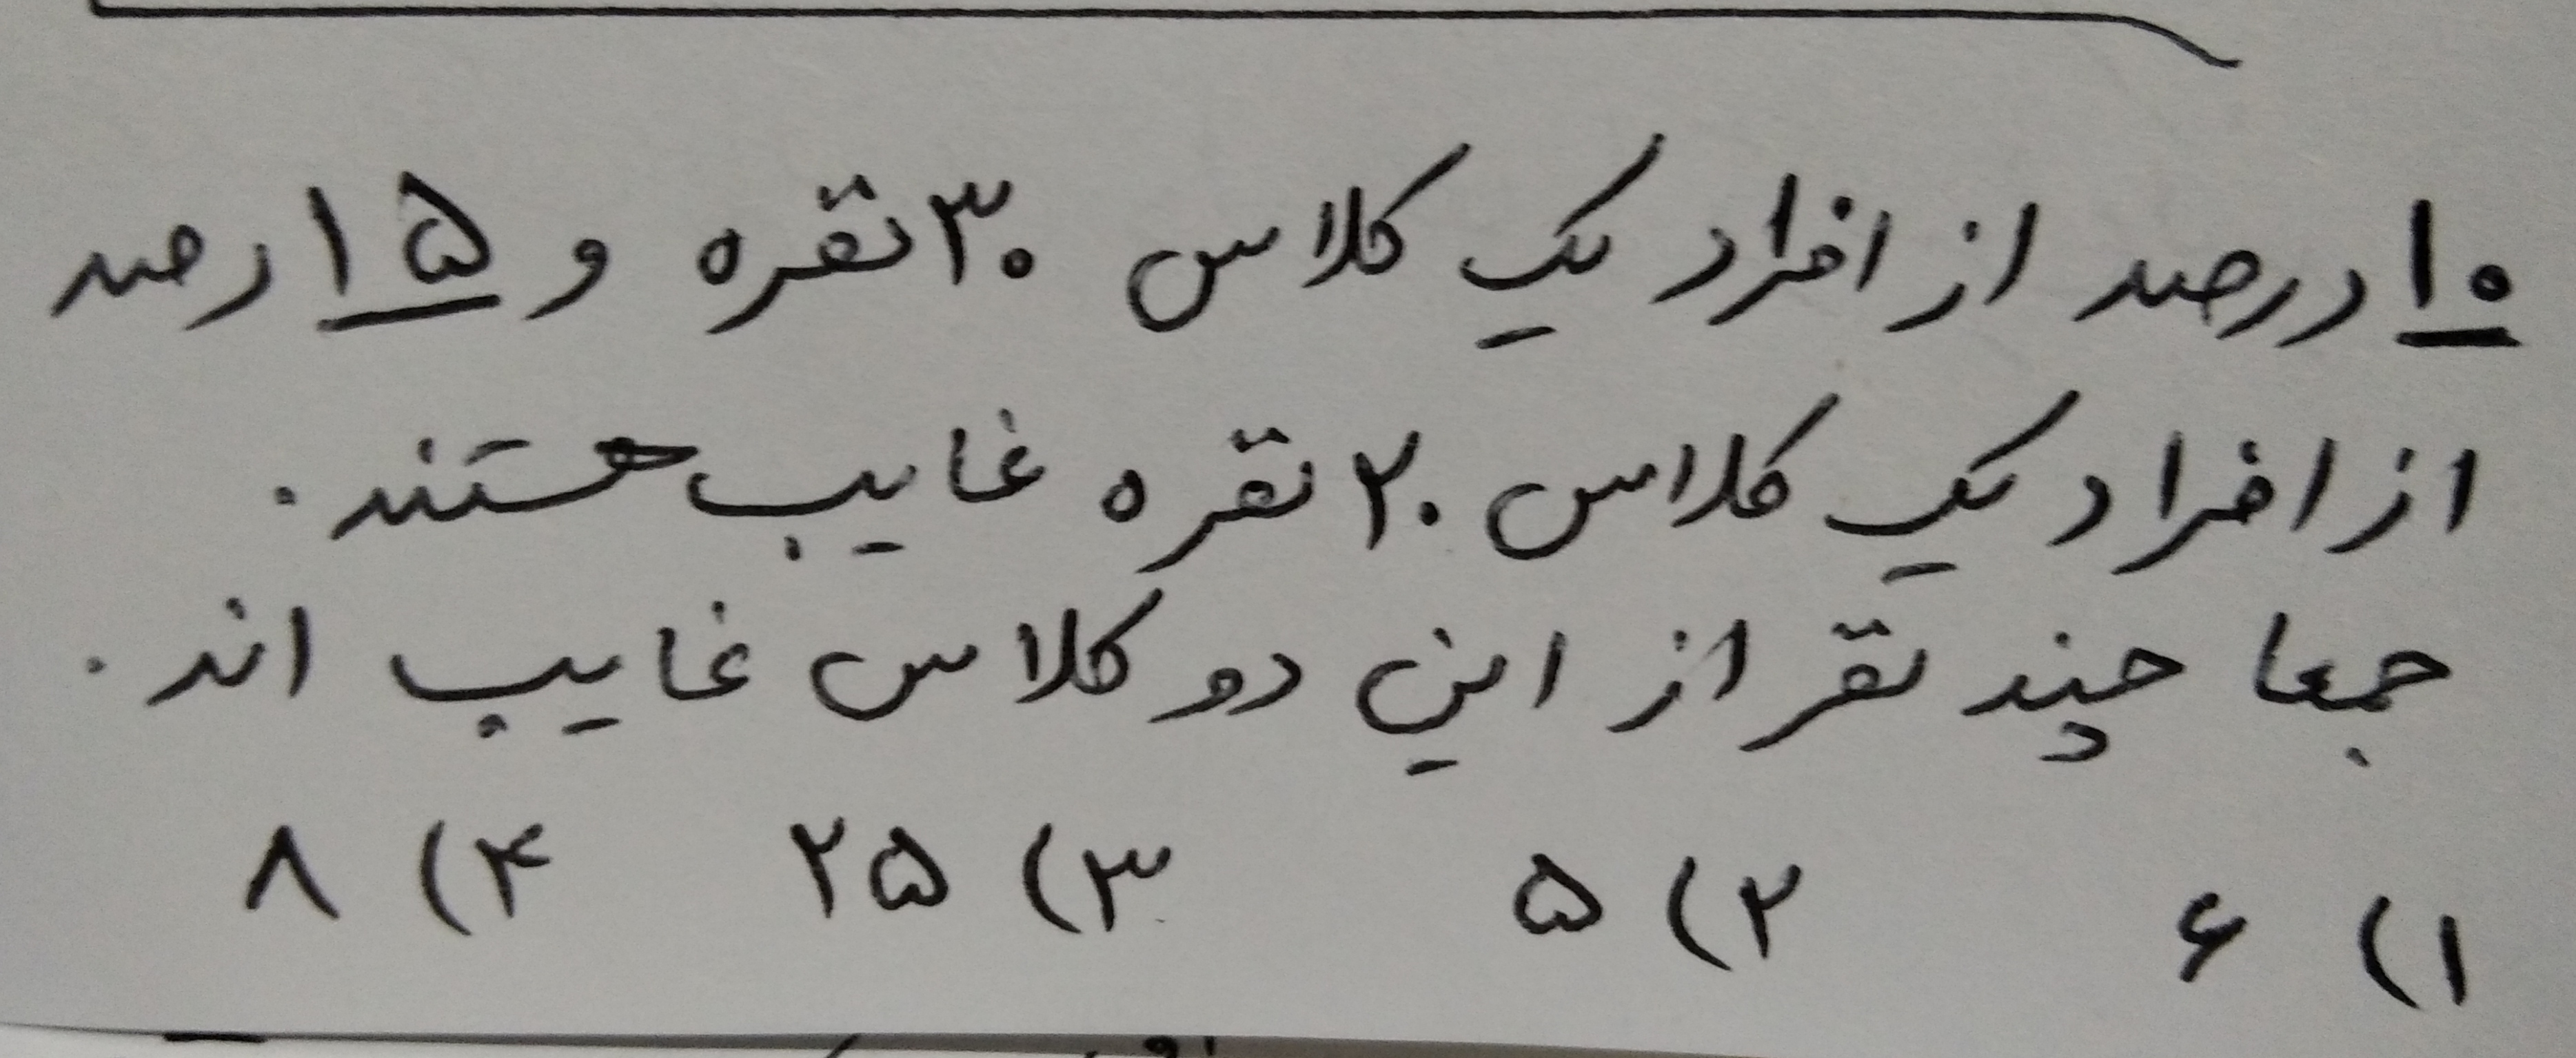 ۱۰ درصد از افراد یک کلاس ۳۰ نفره و ۱۵ درصد
از افراد یک کلاس ۲۰ نفره غایب هستند.
جمعا چند نفر از این دو کلاس غایب اند.
۱) ۶ ۲) ۵ ۳) ۲۵ ۴) ۸